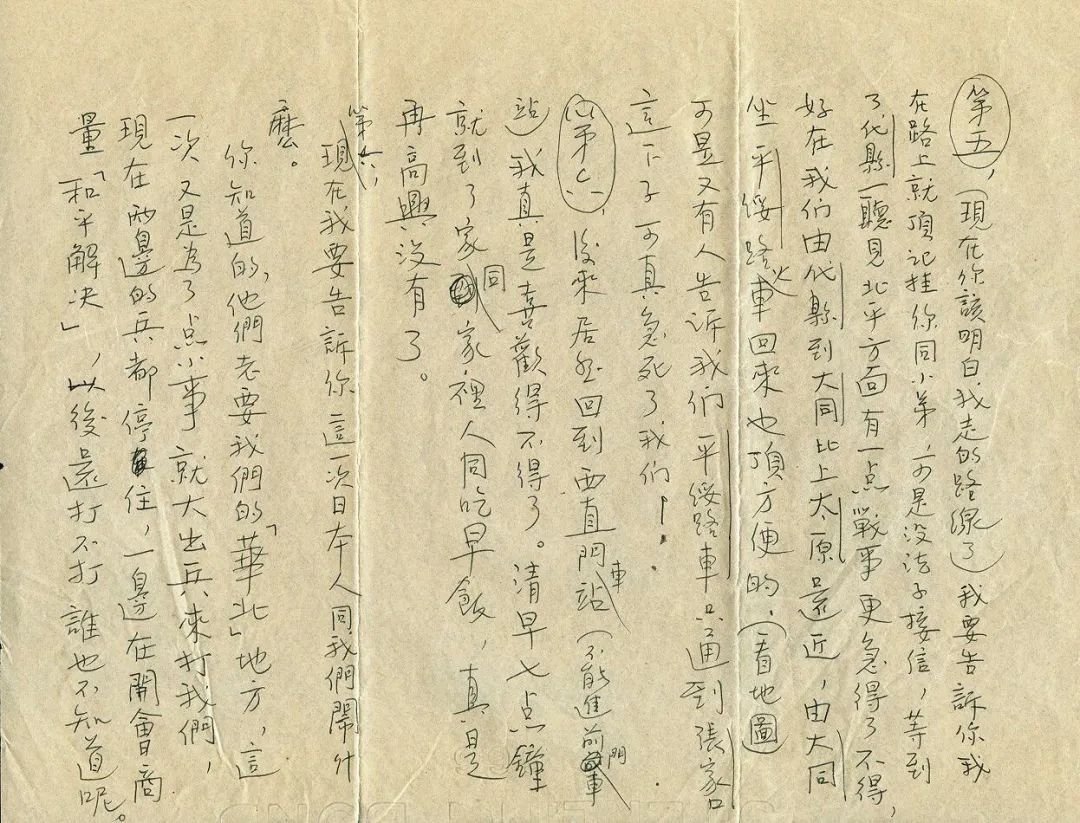 第五，（現在你該明白我走的路線了）我要告訴你我
在路上就頂記挂你同小弟，可是没法子接信，等到
了代縣一聽見北平方面有一点戰事更急得了不得，
好在我们由代縣到大同比上太原還近，由大同
坐平綏路火車回來也頂方便的，（看地圖）
可是又有人告诉我们平綏路車只通到張家口
這下子可真急死了我们！
第六，後來居然回到西直門車站（不能進前門車
站）我真是喜歡得不得了。清早七点鐘
就到了家同家裡人同吃早飯，真是
再高興没有了。
第六，現在我要告訴你這一次日本人同我們鬧什
麽。
你知道的，他們老要我們的「華北」地方，這
一次又是為了点小事就大出兵來打我們，
現在兩邊的兵都停住，一邊在開會商
量「和平解决」，以後還打不打誰也不知道呢。